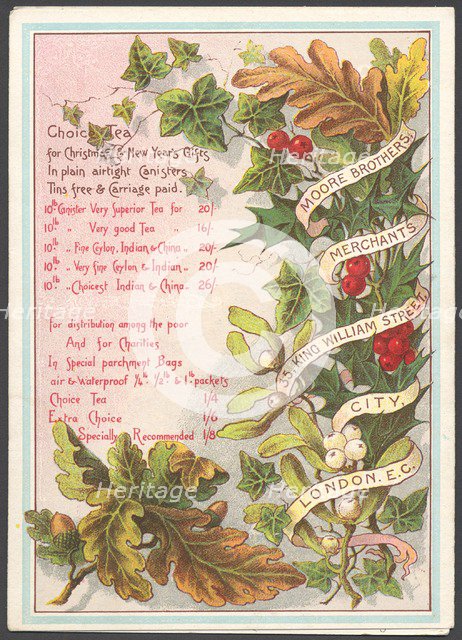 Choice Tea
for Christmas & New Year's Gifts
In plain airtight Canisters
Tins free & Carriage paid.
10lb Canister Very Superior Tea for 20/-
10lb " Very good Tea " 16/-
10lb " Fine Ceylon, Indian & China " 20/-
10lb " Very fine Ceylon & Indian " 20/-
10lb " Choicest Indian & China " 26/-
for distribution among the poor
And for Charities
In Special parchment Bags
air & Waterproof 1/4lb 1/2lb & 1lb packets
Choice Tea 1/4
Extra Choice 1/6
Specially Recommended 1/8
MOORE BROTHERS,
MERCHANTS
35, KING WILLIAM STREET,
CITY,
LONDON. E.C.
Heritage
Heritage
Heritage
Heritage
Heritage
Heritage